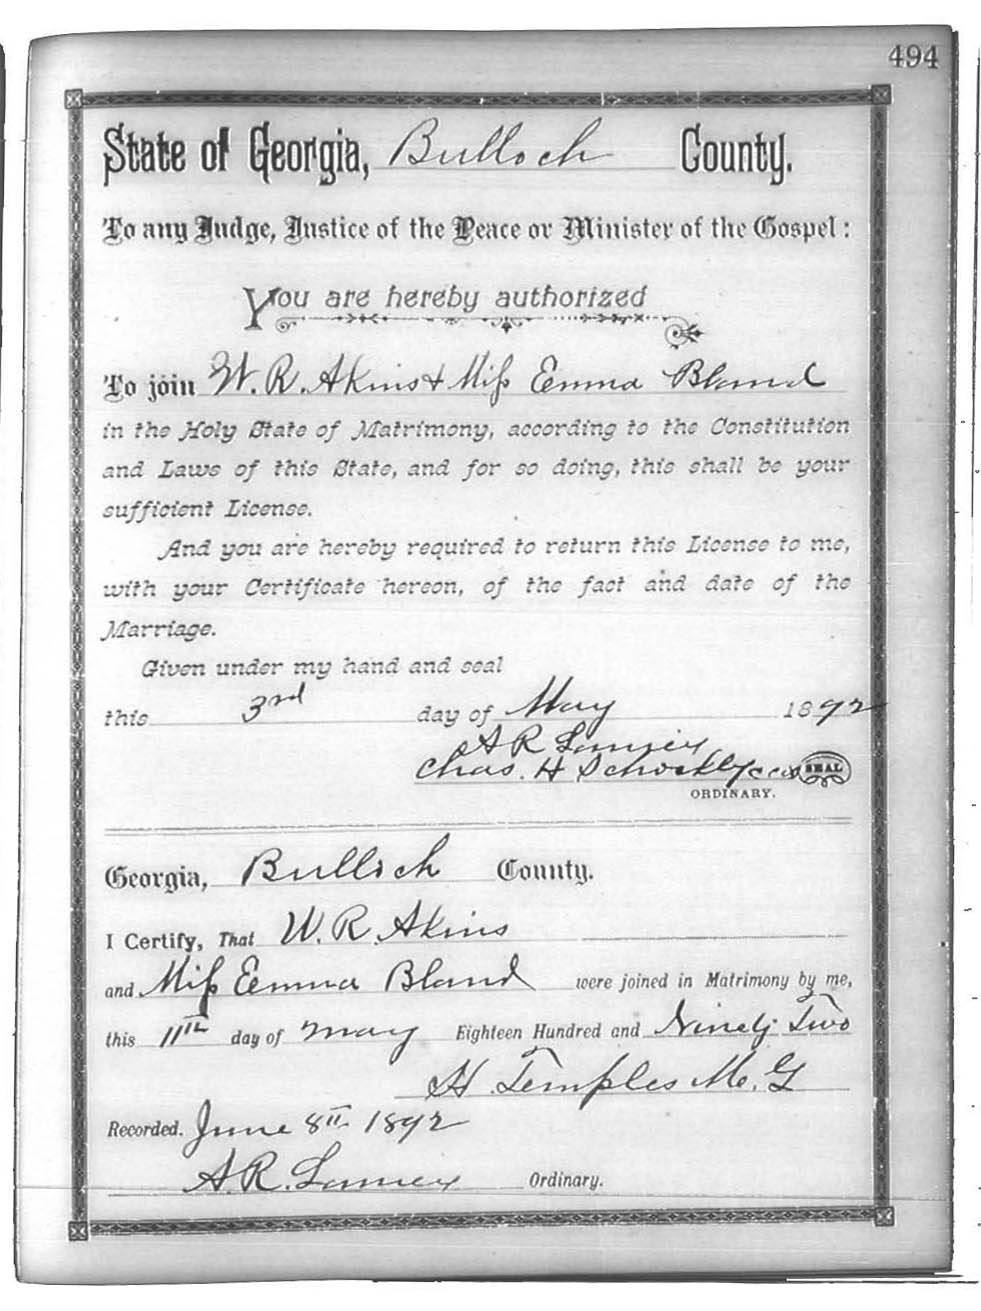 494
State of Georgia, Bulloch County.
To any Judge, Justice of the Peace or Minister of the Gospel:
You are hereby authorized
To join W. R. Akins & Miss Eemma Bland
in the Holy State of Matrimony, according to the Constitution
and Laws of this State, and for so doing, this shall be your
sufficient License.
And you are hereby required to return this License to me,
with your Certificate hereon, of the fact and date of the
Marriage.
Given under my hand and seal
this 3rd day of May 1892
A R
Chas. H SEAL
ORDINARY.
Georgia, Bulloch County.
I Certify, That W. R. Akins
and Miss Eemma Bland were joined in Matrimony by me,
this 11th day of May Eighteen Hundred and Ninety Two
H. Temples M. G
Recorded. June 8th 1892
A. R. Ordinary.